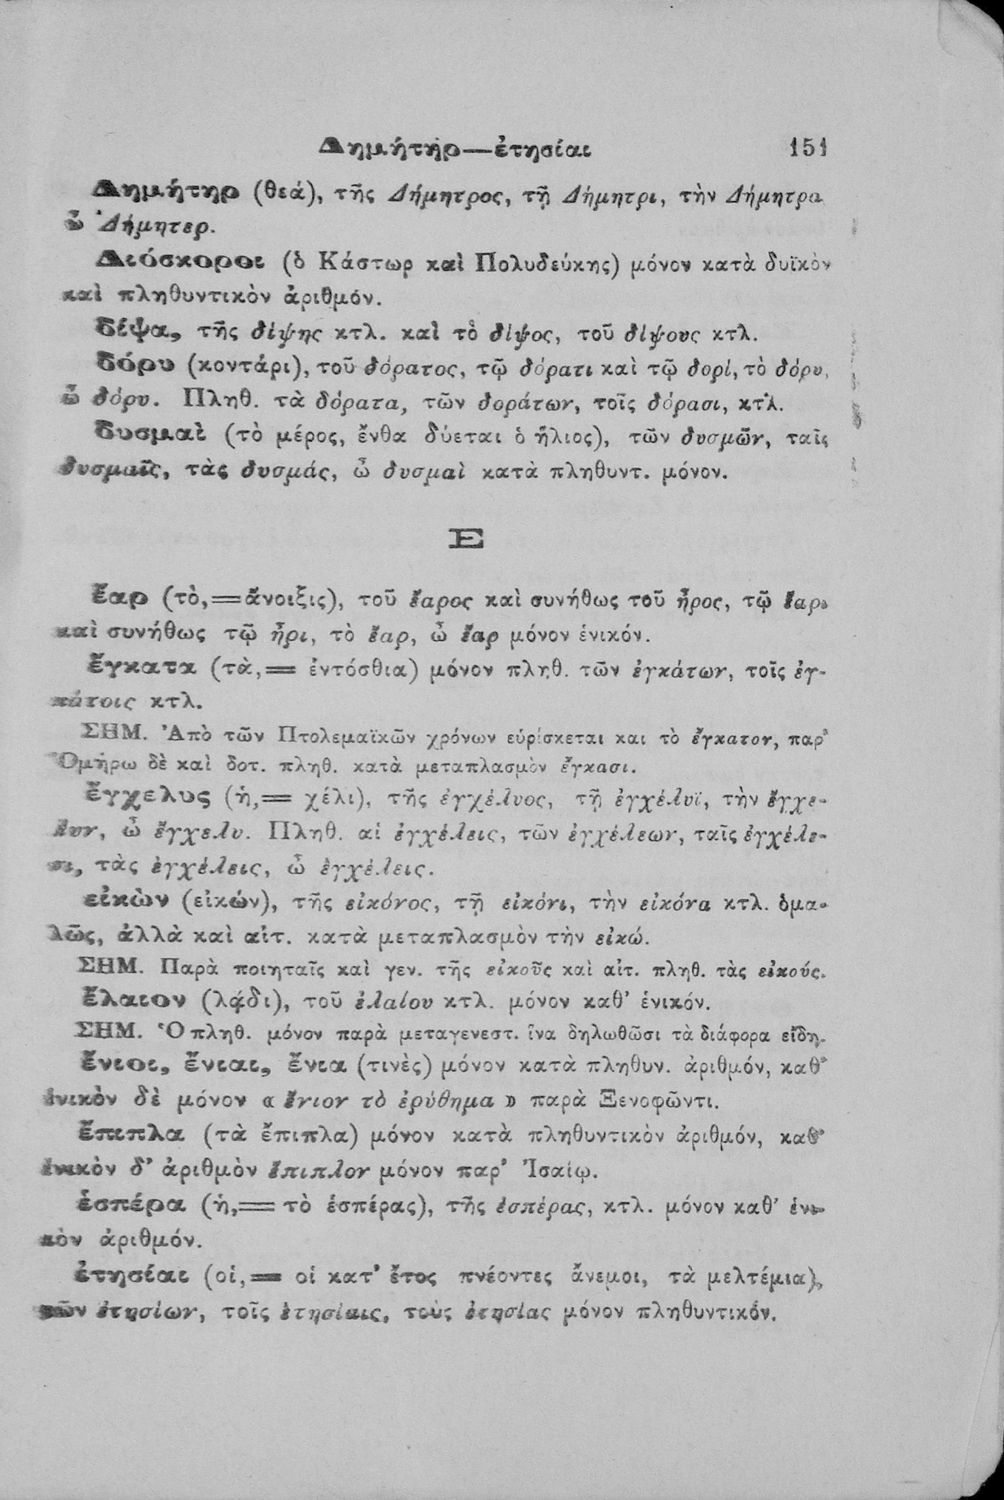 Δημήτηρ—ἐτησίαι 151
Δημήτηρ (θεά), τῆς Δήμητρος, τῇ Δήμητρι, τὴν Δήμητρα
ὦ Δήμητερ.
Διόσκοροι (ὁ Κάστωρ καὶ Πολυδεύκης) μόνον κατὰ δυϊκὸν
καὶ πληθυντικὸν ἀριθμόν.
δίψα, τῆς δίψης κτλ. καὶ τὸ δίψος, τοῦ δίψους κτλ.
δόρυ (κοντάρι), τοῦ δόρατος, τῷ δόρατι καὶ τῷ δορί, τὸ δόρυ,
ὦ δόρυ. Πληθ. τὰ δόρατα, τῶν δοράτων, τοῖς δόρασι, κτλ.
δυσμαὶ (τὸ μέρος, ἔνθα δύεται ὁ ἥλιος), τῶν δυσμῶν, ταῖς
δυσμαῖς, τὰς δυσμάς, ὦ δυσμαὶ κατὰ πληθυντ. μόνον.
Ε
ἔαρ (τὸ,=ἄνοιξις), τοῦ ἔαρος καὶ συνήθως τοῦ ἦρος, τῷ ἔαρι
καὶ συνήθως τῷ ἦρι, τὸ ἔαρ, ὦ ἔαρ μόνον ἑνικόν.
ἔγκατα (τὰ,= ἐντόσθια) μόνον πληθ. τῶν ἐγκάτων, τοῖς ἐγ-
κάτοις κτλ.
ΣΗΜ. Ἀπὸ τῶν Πτολεμαϊκῶν χρόνων εὑρίσκεται και τὸ ἔγκατον, παρ'
Ὁμήρω δὲ καὶ δοτ. πληθ. κατὰ μεταπλασμὸν ἔγκασι.
ἔγχελυς (ἡ,= χέλι), τῆς ἐγχέλυος, τῇ ἐγχέλυϊ, τὴν ἔγχε-
λυν, ὦ ἔγχελυ. Πληθ. αἱ ἐγχέλεις, τῶν ἐγχέλεων, ταῖς ἐγχέλε-
σι, τὰς ἐγχέλεις, ὦ ἐγχέλεις.
εἰκὼν (εἰκών), τῆς εἰκόνος, τῇ εἰκόνι, τὴν εἰκόνα κτλ. ὁμα-
λῶς, ἀλλὰ καὶ αἰτ. κατὰ μεταπλασμὸν τὴν εἰκώ.
ΣΗΜ. Παρὰ ποιηταῖς καὶ γεν. τῆς εἰκοῦς καὶ αἰτ. πληθ. τὰς εἰκούς.
ἔλαιον (λάδι), τοῦ ἐλαίου κτλ. μόνον καθ' ἑνικόν.
ΣΗΜ. Ὁ πληθ. μόνον παρὰ μεταγενεστ. ἵνα δηλωθῶσι τὰ διάφορα εἴδη.
ἔνιοι, ἔνιαι, ἔνια (τινὲς) μόνον κατὰ πληθυν. ἀριθμόν, καθ'
ἑνικὸν δὲ μόνον « ἔνιον τὸ ἐρύθημα » παρὰ Ξενοφῶντι.
ἔπιπλα (τὰ ἔπιπλα) μόνον κατὰ πληθυντικὸν ἀριθμόν, καθ'
ἑνικὸν δ' ἀριθμὸν ἔπιπλον μόνον παρ' Ἰσαίῳ.
ἑσπέρα (ἡ,= τὸ ἑσπέρας), τῆς ἑσπέρας, κτλ. μόνον καθ' ἑνι-
κὸν ἀριθμόν.
ἐτησίαι (οἱ,= οἱ κατ' ἔτος πνέοντες ἄνεμοι, τὰ μελτέμια),
τῶν ἐτησίων, τοῖς ἐτησίαις, τοὺς ἐτησίας μόνον πληθυντικόν.